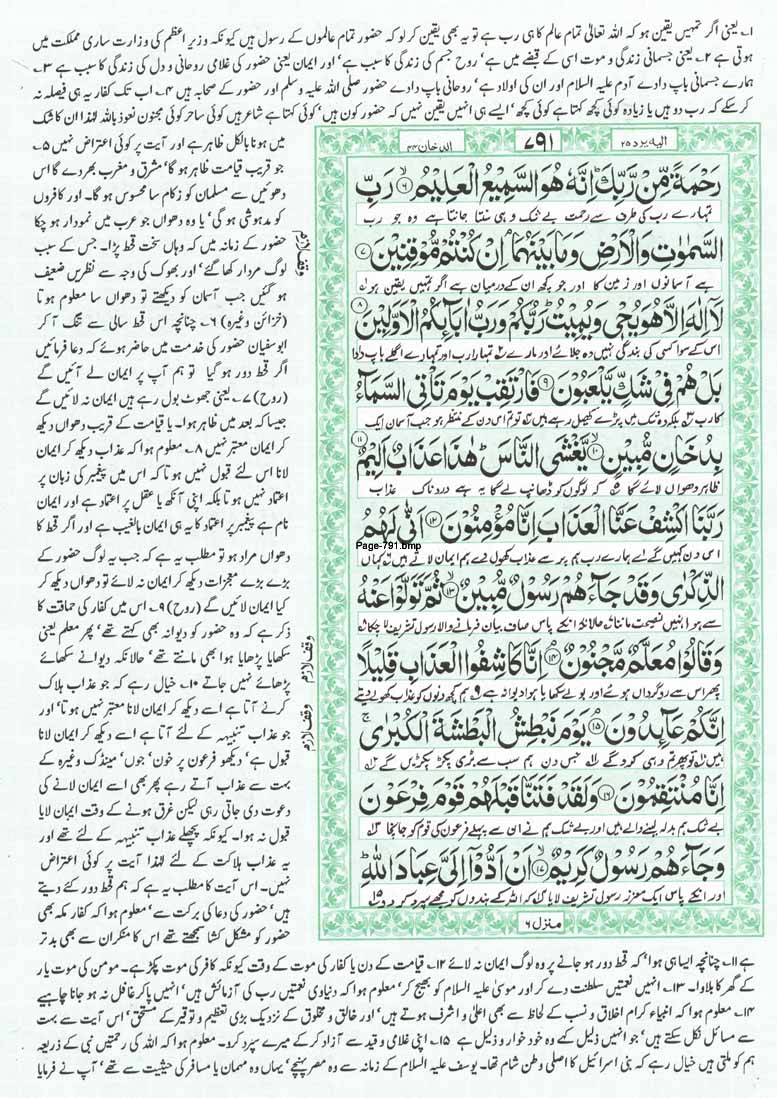 ۱۔ یعنی اگر تمہیں یقین ہو کہ اللہ تعالیٰ تمام عالم کا ہی رب ہے تو یہ بھی یقین کر لو کہ حضور تمام عالموں کے رسول ہیں کیونکہ وزیر اعظم کی وزارت ساری مملکت میں
ہوتی ہے ۲۔ یعنی جسمانی زندگی و موت اسی کے قبضے میں ہے' روح جسم کی زندگی کا سبب ہے' اور ایمان یعنی حضور کی غلامی روحانی و دل کی زندگی کا سبب ہے ۳۔
ہمارے جسمانی باپ دادے آدم علیہ السلام اور ان کی اولاد ہے' روحانی باپ دادے حضور صلی اللہ علیہ وسلم اور حضور کے صحابہ ہیں ۴۔ اب تک کفار یہ ہی فیصلہ نہ
کر سکے کہ رب دو ہیں یا زیادہ کوئی کچھ کہتا ہے کوئی کچھ' ایسے ہی انہیں یقین نہیں کہ حضور کون ہیں' کوئی کہتا ہے شاعر ہیں کوئی ساحر کوئی مجنون نعوذ باللہ لہٰذا ان کا شک
میں ہونا بالکل ظاہر ہے اور آیت پر کوئی اعتراض نہیں ۵۔
جو قریب قیامت ظاہر ہو گا' مشرق و مغرب بھر دے گا اس
دھوئیں سے مسلمان کو زکام سا محسوس ہو گا۔ اور کافروں
کو مدہوشی ہو گی' یا وہ دھواں جو عرب میں نمودار ہو چکا
حضور کے زمانہ میں کہ وہاں سخت قحط پڑا۔ جس کے سبب
لوگ مردار کھا گئے' اور بھوک کی وجہ سے نظریں ضعیف
ہو گئیں جب آسمان کو دیکھتے تو دھواں سا معلوم ہوتا
(خزائن وغیرہ) ۶۔ چنانچہ اس قحط سالی سے تنگ آ کر
ابوسفیان حضور کی خدمت میں حاضر ہوئے کہ دعا فرمائیں
اگر قحط دور ہو گیا تو ہم آپ پر ایمان لے آئیں گے
(روح) ۷۔ یعنی جھوٹ بول رہے ہیں ایمان نہ لائیں گے
جیسا کہ بعد میں ظاہر ہوا۔ یا قیامت کے قریب دھواں دیکھ
کر ایمان معتبر نہیں ۸۔ معلوم ہوا کہ عذاب دیکھ کر ایمان
لانا اس لئے قبول نہیں ہوتا کہ اس میں پیغمبر کی زبان پر
اعتماد نہیں ہوتا بلکہ اپنی آنکھ یا عقل پر اعتماد ہے اور ایمان
نام ہے پیغمبر پر اعتماد کا یہ ہی ایمان بالغیب ہے اور اگر قحط کا
دھواں مراد ہو تو مطلب یہ ہے کہ جب یہ لوگ حضور کے
بڑے بڑے معجزات دیکھ کر ایمان نہ لائے تو دھواں دیکھ کر
کیا ایمان لائیں گے (روح) ۹۔ اس میں کفار کی حماقت کا
ذکر ہے کہ وہ حضور کو دیوانہ بھی کہتے تھے' پھر معلم یعنی
سکھایا پڑھایا ہوا بھی مانتے تھے' حالانکہ دیوانے سکھائے
پڑھائے نہیں جاتے ۱۰۔ خیال رہے کہ جو عذاب ہلاک
کرنے آتا ہے اسے دیکھ کر ایمان لانا معتبر نہیں ہوتا' اور
جو عذاب تنبیہہ کے لئے آتا ہے اسے دیکھ کر ایمان لانا
قبول ہے' دیکھو فرعون پر خون' جوں' مینڈک وغیرہ کے
بہت سے عذاب آتے رہے پھر بھی اسے ایمان لانے کی
دعوت دی جاتی رہی لیکن غرق ہونے کے وقت ایمان لایا
قبول نہ ہوا۔ کیونکہ پچھلے عذاب تنبیہہ کے لئے تھے اور
یہ عذاب ہلاکت کے لئے لہٰذا آیت پر کوئی اعتراض
نہیں۔ اس آیت کا مطلب یہ ہے کہ ہم قحط دور کئے دیتے
ہیں' حضور کی دعا کی برکت سے' معلوم ہوا کہ کفار مکہ بھی
حضور کو مشکل کشا سمجھتے تھے اس کا منکران سے بھی بدتر
الیہ یرد ۲۵
۷۹۱
الدخان ۴۴
رَحْمَةً مِّنْ رَّبِّكَ ۚ اِنَّهٗ هُوَ السَّمِيْعُ الْعَلِيْمُ ۙ۶ رَبِّ
تمہارے رب کی طرف سے رحمت بے شک وہی سنتا جانتا ہے وہ جو رب
السَّمٰوٰتِ وَالْاَرْضِ وَمَا بَيْنَهُمَا ۘ اِنْ كُنْتُمْ مُّوْقِنِيْنَ ۷
ہے آسمانوں اور زمین کا اور جو کچھ ان کے درمیان ہے اگر تمہیں یقین ہو
لَاۤ اِلٰهَ اِلَّا هُوَ يُحْيٖ وَيُمِيْتُ ؕ رَبُّكُمْ وَرَبُّ اٰبَآئِكُمُ الْاَوَّلِيْنَ ۸
اس کے سوا کسی کی بندگی نہیں وہ جلائے اور مارے تمہارا رب اور تمہارے اگلے باپ دادا
بَلْ هُمْ فِيْ شَكٍّ يَّلْعَبُوْنَ ۹ فَارْتَقِبْ يَوْمَ تَاْتِي السَّمَآءُ
کا رب بلکہ وہ شک میں پڑے کھیل رہے ہیں تو تم اس دن کے منتظر ہو جب آسمان ایک
بِدُخَانٍ مُّبِيْنٍ ۙ۱۰ يَّغْشَى النَّاسَ ؕ هٰذَا عَذَابٌ اَلِيْمٌ ۱۱
ظاہر دھواں لائے گا کہ لوگوں کو ڈھانپ لے گا یہ ہے دردناک عذاب
رَبَّنَا اكْشِفْ عَنَّا الْعَذَابَ اِنَّا مُؤْمِنُوْنَ ۱۲ اَنّٰى لَهُمُ
Page-791.bmp
اس دن کہیں گے اے ہمارے رب ہم پر سے عذاب کھول دے ہم ایمان لاتے ہیں کہاں
الذِّكْرٰى وَقَدْ جَآءَهُمْ رَسُوْلٌ مُّبِيْنٌ ۙ۱۳ ثُمَّ تَوَلَّوْا عَنْهُ
سے ہو انہیں نصیحت ماننا حالانکہ انکے پاس صاف بیان فرمانے والا رسول تشریف لا چکا
وَقَالُوْا مُعَلَّمٌ مَّجْنُوْنٌ ۘ۱۴ اِنَّا كَاشِفُوا الْعَذَابِ قَلِيْلًا
پھر اس سے روگرداں ہوئے اور بولے سکھایا ہوا دیوانہ ہے ہم کچھ دنوں کو عذاب کھولے دیتے
اِنَّكُمْ عَآئِدُوْنَ ۘ۱۵ يَوْمَ نَبْطِشُ الْبَطْشَةَ الْكُبْرٰى ۚ
ہیں تو پھر تم وہی کرو گے جس دن ہم سب سے بڑی پکڑ پکڑیں گے
اِنَّا مُنْتَقِمُوْنَ ۱۶ وَلَقَدْ فَتَنَّا قَبْلَهُمْ قَوْمَ فِرْعَوْنَ
بے شک ہم بدلہ لینے والے ہیں اور بے شک ہم نے ان سے پہلے فرعون کی قوم کو جانچا
وَجَآءَهُمْ رَسُوْلٌ كَرِيْمٌ ۙ۱۷ اَنْ اَدُّوْۤا اِلَيَّ عِبَادَ اللّٰهِ ؕ
اور انکے پاس ایک معزز رسول تشریف لایا کہ اللہ کے بندوں کو مجھے سپرد کر دو
وقف لازم
وقف لازم
وقف لازم
منزل ۶
ہے ۱۱۔ چنانچہ ایسا ہی ہوا' کہ قحط دور ہو جانے پر وہ لوگ ایمان نہ لائے ۱۲۔ قیامت کے دن یا کفار کی موت کے وقت کیونکہ کافر کی موت پکڑ ہے۔ مومن کی موت یار
کے گھر کا بلاوا۔ ۱۳۔ انہیں نعمتیں سلطنت دے کر اور موسیٰ علیہ السلام کو بھیج کر' معلوم ہوا کہ دنیاوی نعمتیں رب کی آزمائش ہیں' انہیں پا کر غافل نہ ہو جانا چاہیے
۱۴۔ معلوم ہوا کہ انبیاء کرام اخلاق و نسب کے لحاظ سے بھی اعلیٰ و اشرف ہوتے ہیں' اور خالق و مخلوق کے نزدیک بڑی تعظیم و توقیر کے مستحق' اس آیت سے بہت
سے مسائل نکل سکتے ہیں' جو انہیں ذلیل کہے وہ خود خوار و ذلیل ہے ۱۵۔ اپنی غلامی و قید سے آزاد کر کے میرے سپرد کرو۔ معلوم ہوا کہ اللہ کی رحمتیں نبی کے ذریعہ
ہم کو ملتی ہیں خیال رہے کہ بنی اسرائیل کا اصلی وطن شام تھا۔ یوسف علیہ السلام کے زمانہ سے وہ مصر پہنچے' یہاں وہ مہمان یا مسافر کی حیثیت سے تھے' آپ نے فرمایا